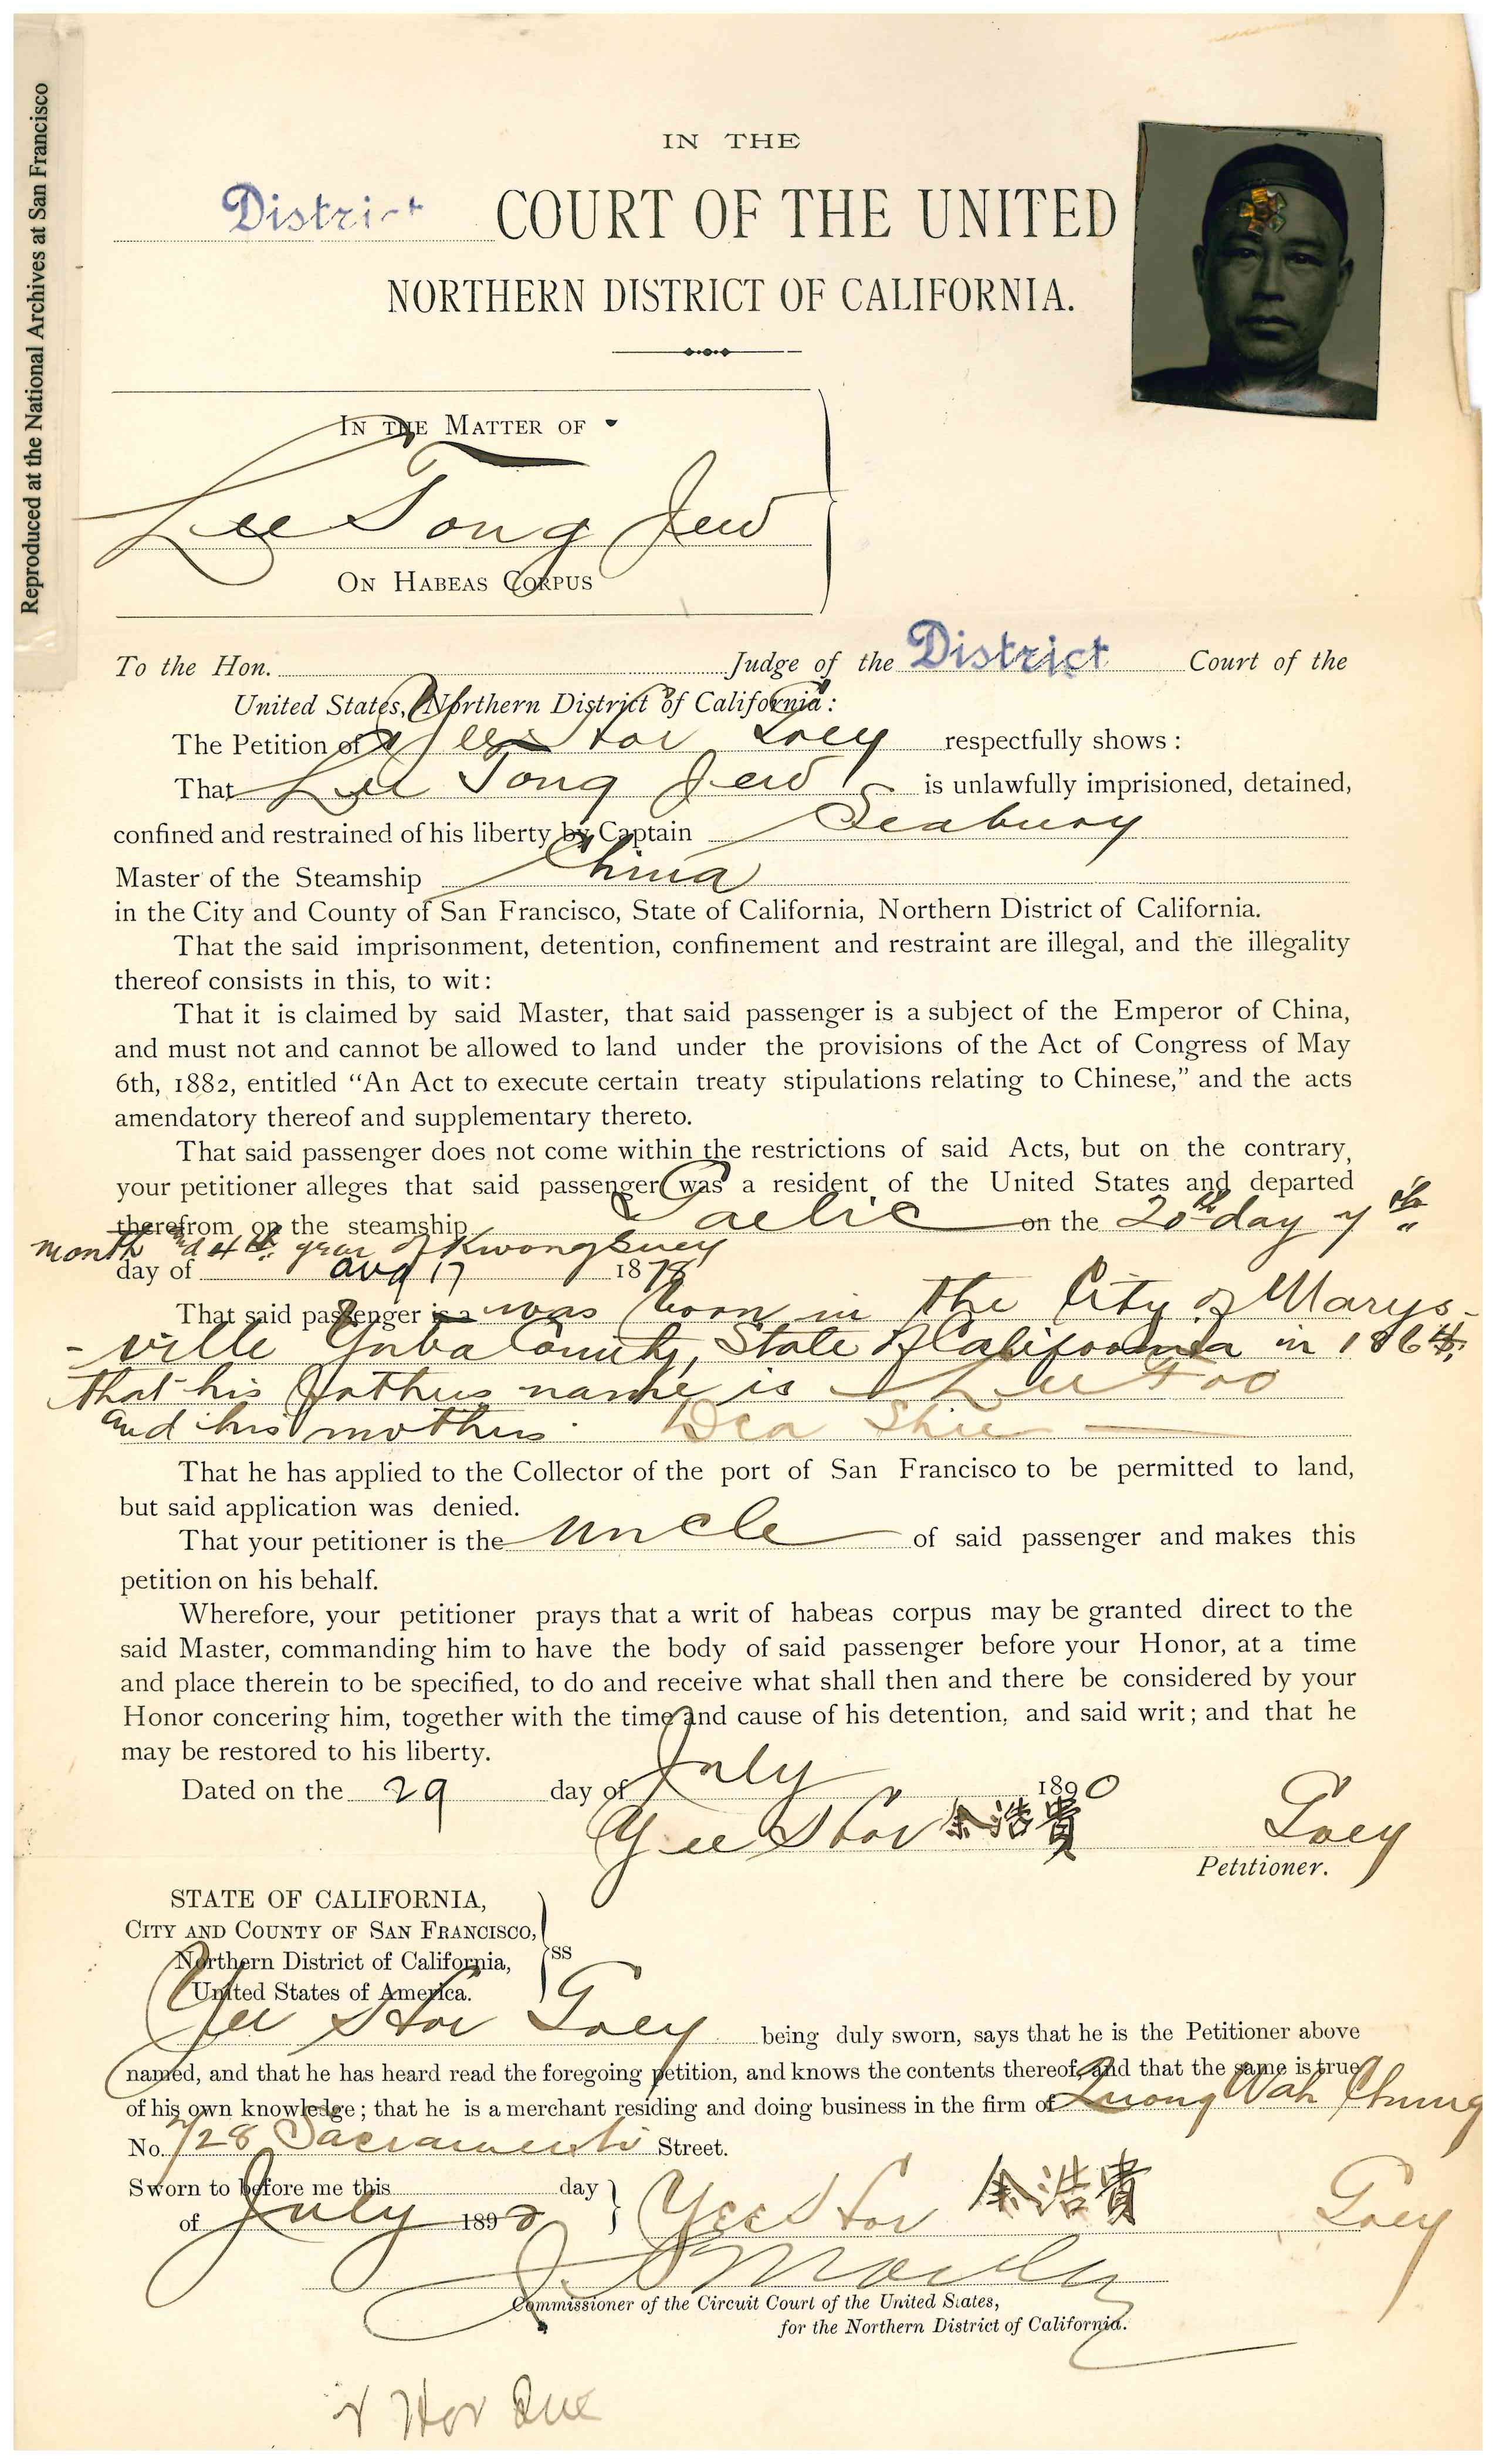 Reproduced at the National Archives at San Francisco
IN THE
District COURT OF THE UNITED
NORTHERN DISTRICT OF CALIFORNIA.
IN THE MATTER OF
Lee Tong Jew
ON HABEAS CORPUS
To the Hon. Judge of the District Court of the
United States, Northern District of California:
The Petition of Yee Hor Goey respectfully shows:
That Lee Tong Jew is unlawfully imprisioned, detained,
confined and restrained of his liberty by Captain Seabury
Master of the Steamship China
in the City and County of San Francisco, State of California, Northern District of California.
That the said imprisonment, detention, confinement and restraint are illegal, and the illegality
thereof consists in this, to wit:
That it is claimed by said Master, that said passenger is a subject of the Emperor of China,
and must not and cannot be allowed to land under the provisions of the Act of Congress of May
6th, 1882, entitled “An Act to execute certain treaty stipulations relating to Chinese,” and the acts
amendatory thereof and supplementary thereto.
That said passenger does not come within the restrictions of said Acts, but on the contrary,
your petitioner alleges that said passenger was a resident of the United States and departed
therefrom on the steamship Gaelic on the 20th day 7th
month 4th year of Kwong Suey
day of Aug 17 1878
That said passenger is a was born in the City of Marys-
-ville Yuba County, State of California in 1864.
that his fathers name is Lee Foo
and his mothers Dea Shee
That he has applied to the Collector of the port of San Francisco to be permitted to land,
but said application was denied.
That your petitioner is the uncle of said passenger and makes this
petition on his behalf.
Wherefore, your petitioner prays that a writ of habeas corpus may be granted direct to the
said Master, commanding him to have the body of said passenger before your Honor, at a time
and place therein to be specified, to do and receive what shall then and there be considered by your
Honor concering him, together with the time and cause of his detention, and said writ; and that he
may be restored to his liberty.
Dated on the 29 day of July 1890
Yee Hor 余浩貴 Goey
Petitioner.
STATE OF CALIFORNIA,
CITY AND COUNTY OF SAN FRANCISCO,
Northern District of California, SS
United States of America.
Yee Hor Goey being duly sworn, says that he is the Petitioner above
named, and that he has heard read the foregoing petition, and knows the contents thereof, and that the same is true
of his own knowledge; that he is a merchant residing and doing business in the firm of Quong Wah Chung
No. 728 Sacramento Street.
Sworn to before me this day
of July 1890 Yee Hor 余浩貴 Goey
Commissioner of the Circuit Court of the United States,
for the Northern District of California.
Hor Que